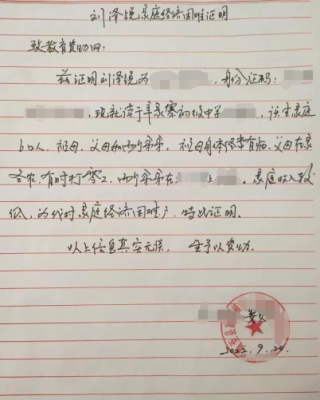 刘泽锐家庭经济困难证明
致教育资助中心:
兹证明刘泽锐为 身份证号:
现就读于 初级中学 该生家庭
6口人,祖母、父母和两个弟弟,祖母身体终常有病,父母在家
务农,有时打零工,两个弟弟在 家庭收入较
低,为我村家庭经济困难户,特此证明。
以上信息真实无误, 给予以资助。
2022.9.20